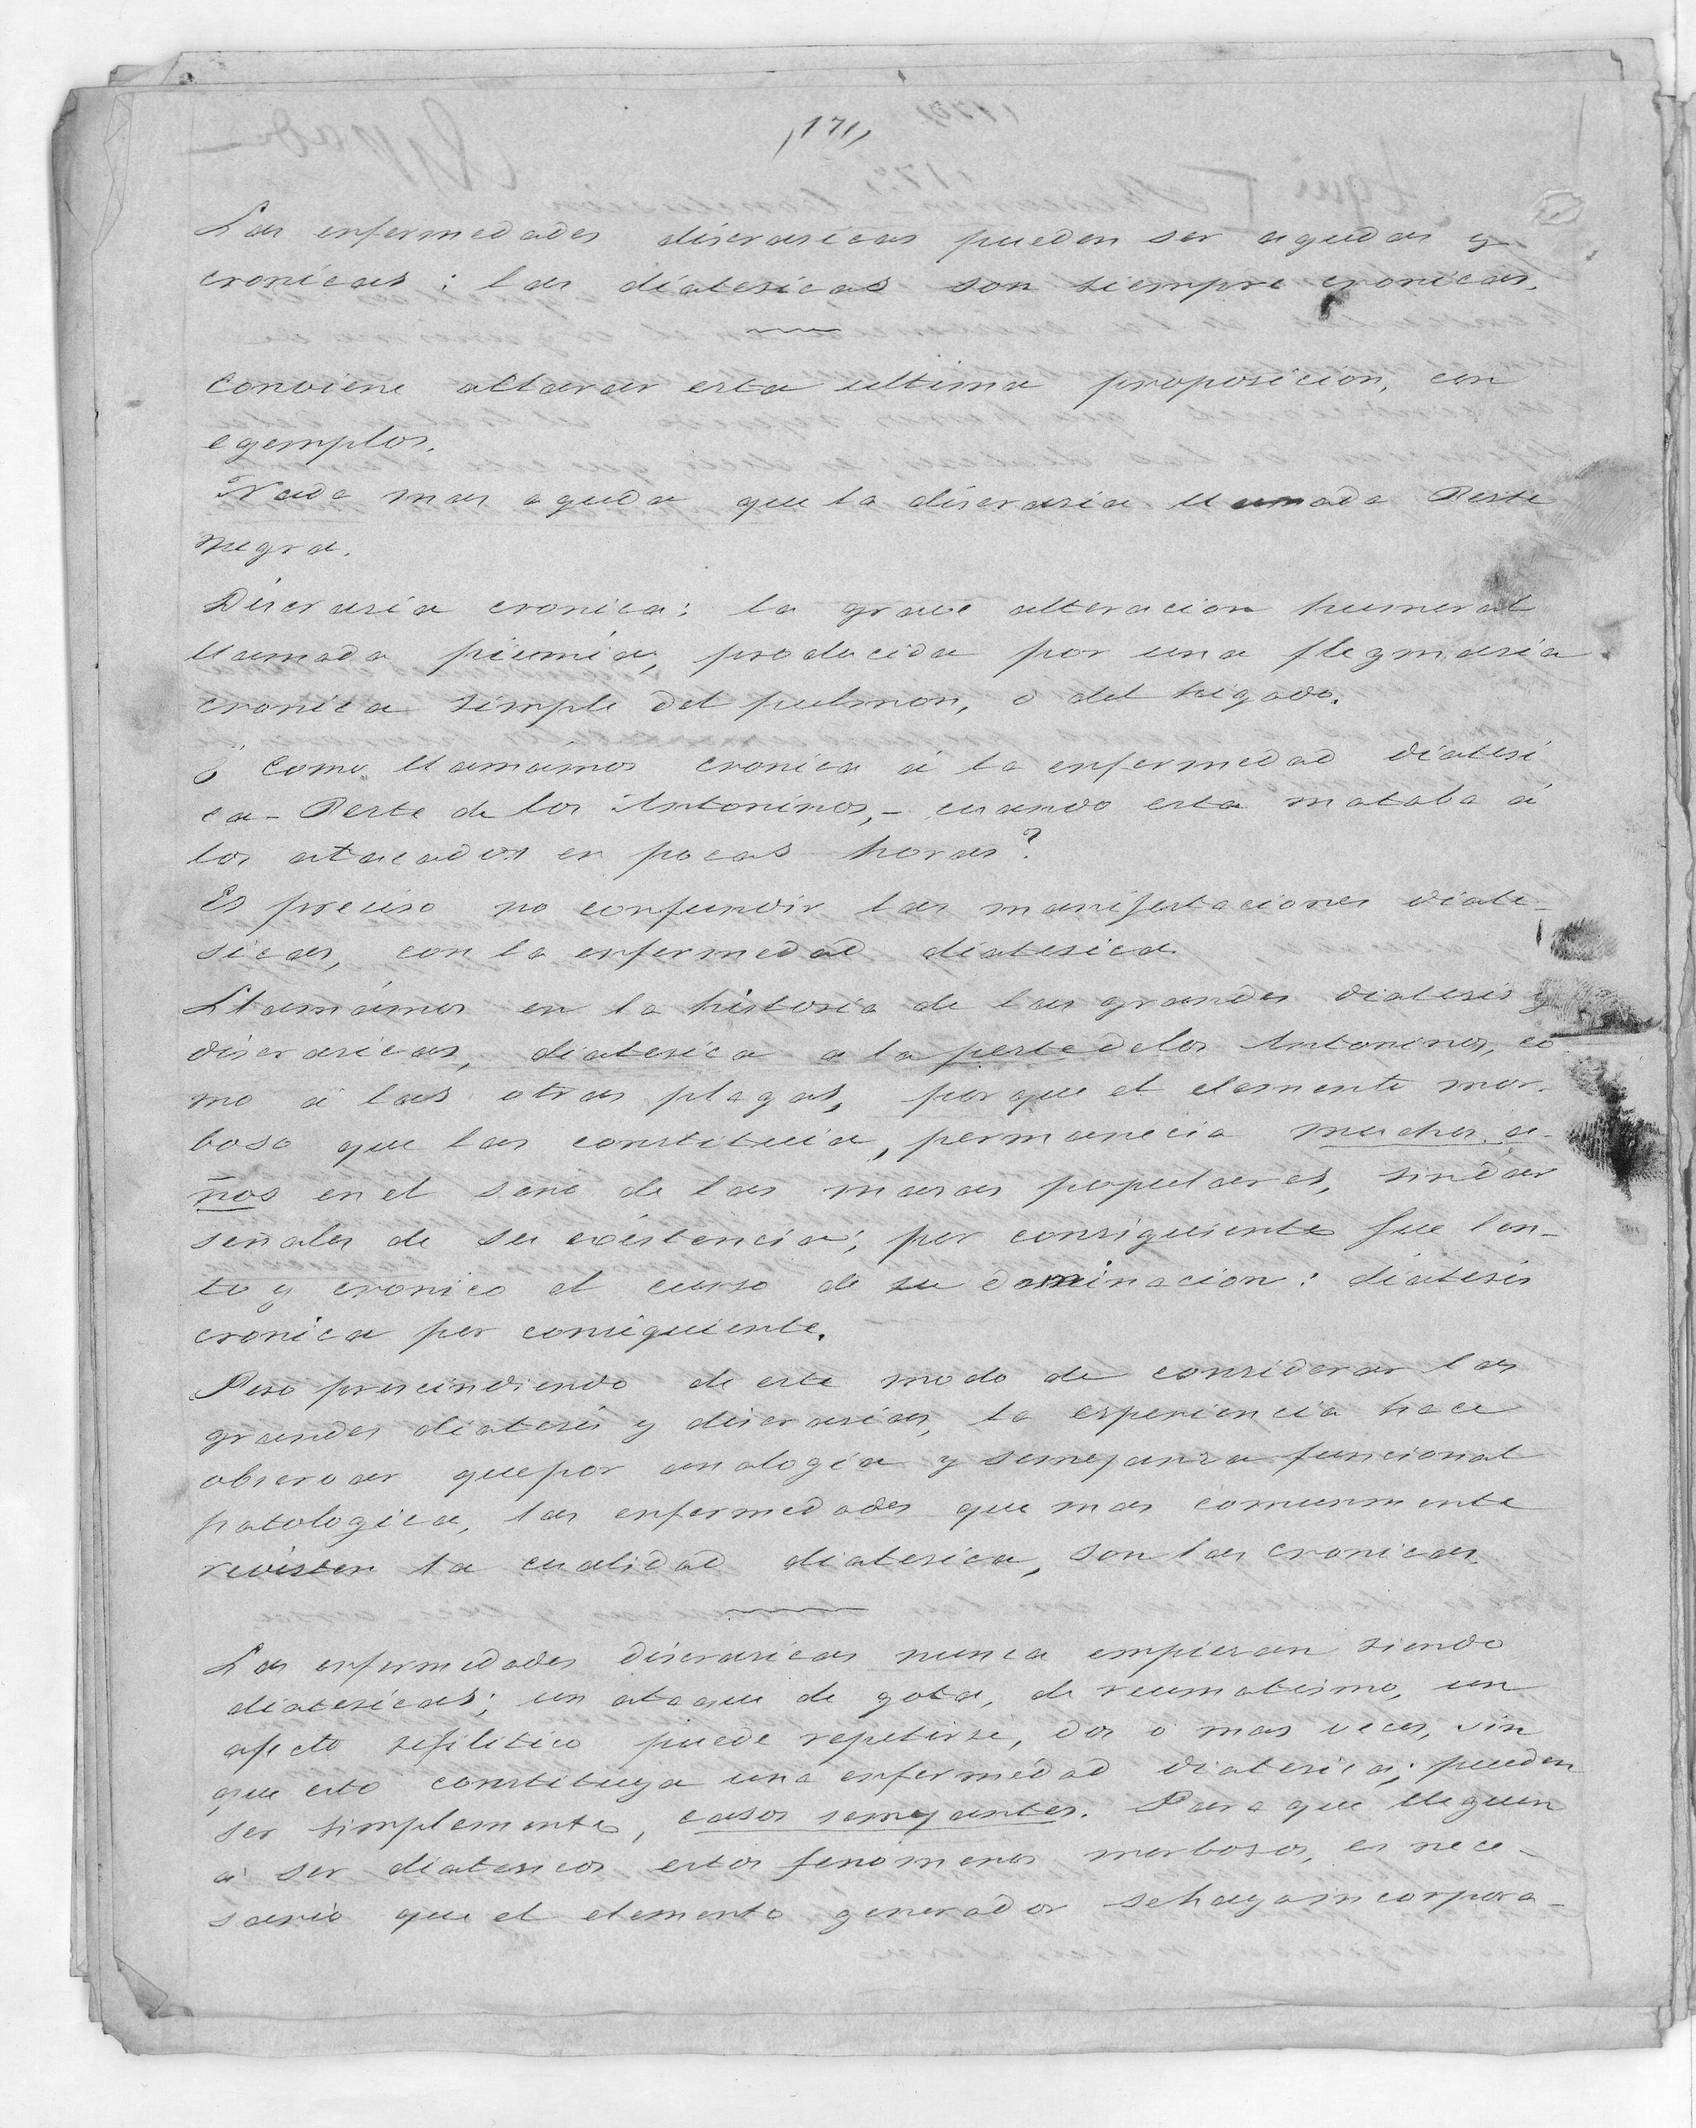 (171)
Las enfermedades discrasicas pueden ser agudas y
cronicas: las diatesicas son siempre cronicas.
Conviene aclarar esta ultima proposicion, con
egemplos.
Nada mas aguda que la discrasia llamada Peste
negra.
Discrasia cronica: la grave alteracion humeral
llamada piemía, producida por una flegmasia
cronica simple del pulmon, o del higado.
¿Como llamámos cronica á la enfermedad diatesi
ca - Peste de los Antoninos, - cuando esta mataba á
los atacados en pocas horas?
Es preciso no confundir las manifestaciones diate-
sicas, con la enfermedad diatesica.
Llamámos en la historia de las grandes diatesis y
discrasicas, diatesica a la peste de los Antoninos, co
mo á las otras plagas, porque el elemento mor-
boso que las constituia, permanecia muchos a-
ños en el seno de las masas populares, sin dar
señales de su existencia; por consiguiente fue len-
to y cronico el curso de su dominacion: diatesis
cronica por consiguiente.
Pero prescindiendo de este modo de considerar las
grandes diatesis y discrasias, la esperiencia hace
observar que por analogía y semejanza funcional
patologica, las enfermedades que mas comunmente
revisten la cualidad diatesica, son las cronicas.
Las enfermedades discrasicas nunca empiezan siendo
diatesicas; un ataque de gota, de reumatismo, un
afecto sifilitico puede repetirse, dos o mas veces, sin
que esto constituya una enfermedad diatesica; pueden
ser simplemente, casos semejantes. Para que lleguen
á ser diatesicos estos fenómenos morbosos, es nece-
sario que el elemento generador se haya incorpora-